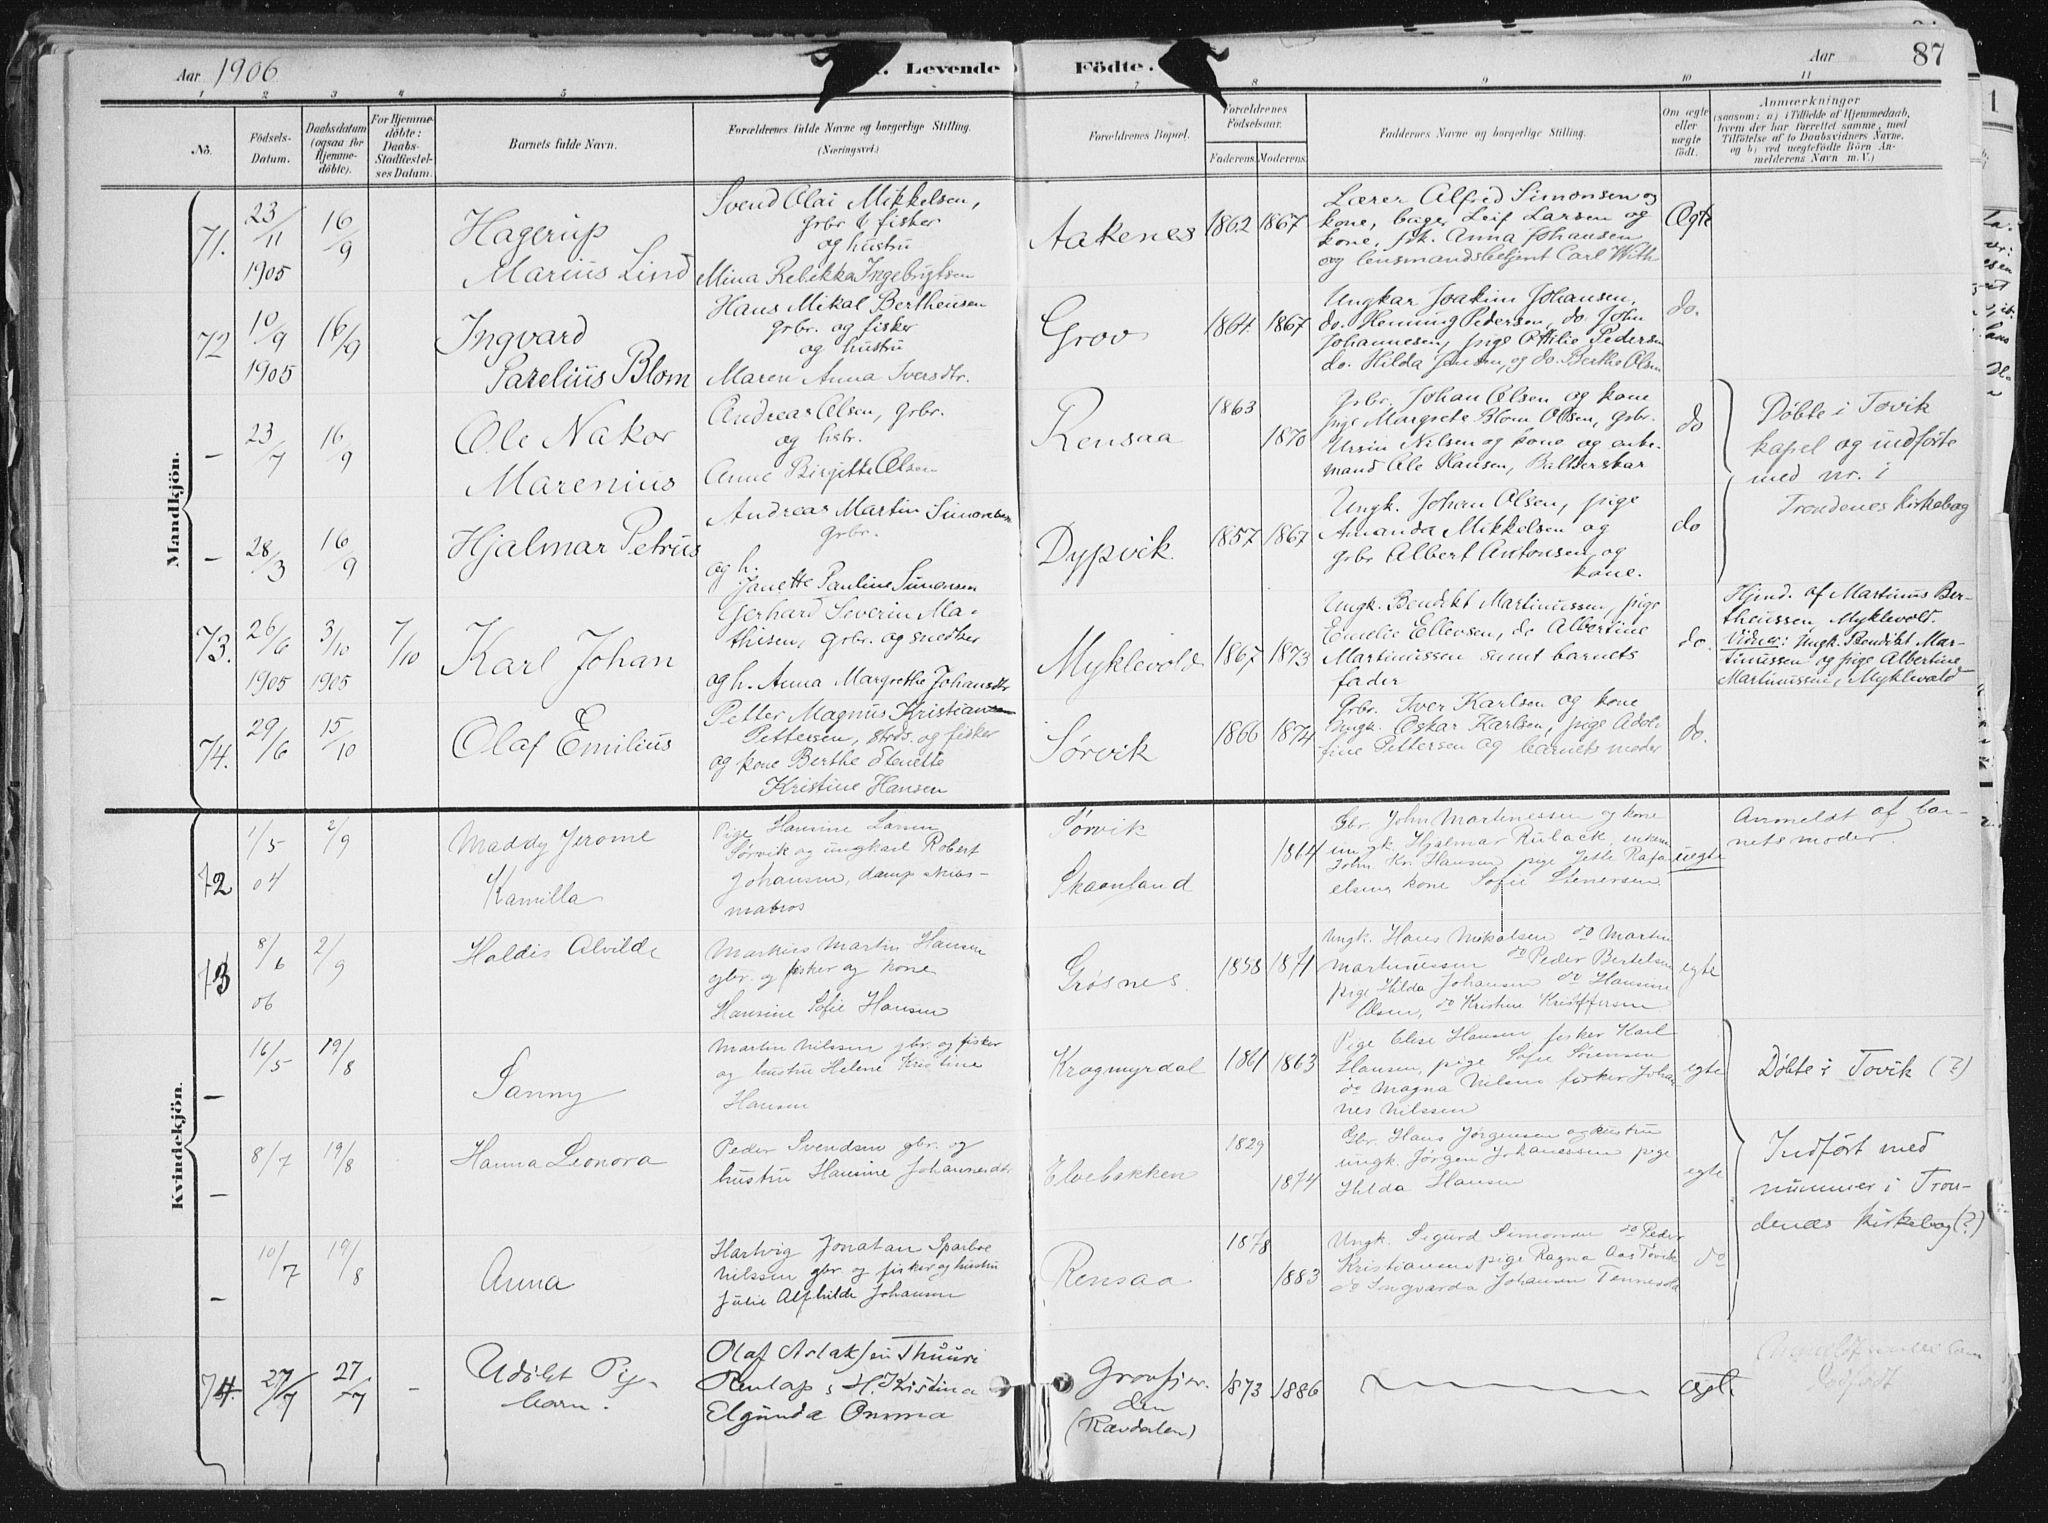 Aar 1906
Levende Födte.
Aar
87
1 2 3 4 5 6 7 8 9 10 11
No.
Födsels-Datum.
Daabsdatum (ogsaa for Hjemme-döbte).
For Hjemme-döbte: Daabs-Stadfæstel-ses Datum.
Barnets fulde Navn.
Forældrenes fulde Navne og borgerlige Stilling.
(Næringsvei.)
Forældrenes Bopæl.
Forældrenes Födselsaar.
Faderens. Moderens.
Faddernes Navne og borgerlige Stilling.
Om ægte eller uægte födt.
Anmærkninger
(saasom: a) i Tilfælde af Hjemmedaab, hvem der har forrettet samme, med Tilföielse af to Daabsvidners Navne, og b) ved uægtefödte Börn An-melderens Navn m. V.)
Mandkjön.
71.
23/11 1905
16/9
Hagerup
Marius Lind
Svend Olai Mikkelsen,
grbr & fisker
og hustru
Mina Rebikka Ingebrigtsen
Aakenes
1862 1867
Lærer Alfred Simonsen og
kone, bager Leif Larsen og
kone, frk. Anna Johansen
og lensmandsbetjent Carl With
Ægte
72
10/9 1905
16/9
Ingvard
Parelius Blom
Hans Mikal Bertheusen
grbr. og fisker
og hustru
Maren Anna Iversdtr.
Grov
1864. 1867
Ungkar Joakim Johansen,
do. Henning Pedersen, do. John
Johannesen, pige Ottilie Pedersen
do. Hilda Jensen, og do. Berthe Olsen
do.
–
23/7
16/9
Ole Nakor
Marenius
Andreas Olsen, grbr.
og hstr.
Anne Birgitte Olsen
Rensaa
1863
1870
Grbr. Johan Olsen og kone
pige Margrete Blom Olsen, grbr.
Ursin Nilsen og kone og arbe-
mand Ole Hansen, Balterskar
do
Döbte i Tovik
kapel og indförte
med nr. i
Trondenes kirkebog
–
28/3
16/9
Hjalmar Petrus
Andreas Martin Simonsen
grbr.
og h.
Janette Pauline Simonsen
Dypvik.
1857 1867
Ungk. Johan Olsen, pige
Amanda Mikkelsen og
grbr Albert Antonsen og
kone.
do
73.
26/6 1905
3/10 1905
7/10
Karl Johan
Gerhard Severin Ma-
thisen, grbr. og snedker
og h. Anna Margrethe Johansdtr
Myklevold
1867 1873
Ungk. Bendikt Martinussen, pige
Emelie Ellevsen, do Albertine
Martinussen samt barnets
fader
do.
Hjmd. af Martinus Ber-
theussen, Myklevold.
Vidner: Ungk. Bendikt Mar-
tinussen og pige Albertine
Martinussen, Myklevold
74.
29/6
15/10
Olaf Emilius
Petter Magnus Kristian
Pettersen, strds. og fisker
og kone Berthe Stenette
Kristine Hansen
Sørvik
1866 1874
Grbr. Iver Karlsen og kone
Ungk. Oskar Karlsen, pige Adol-
fine Pettersen og barnets moder
do.
Kvindekjön.
72
1/5 04
2/9
Maddy Jerome
Kamilla
Pige Hansine Larsen
Sørvik og ungkarl Robert
Johansen, damp skibs-
matros
Sørvik
Skaanland
1864
Gbr. John Martinessen og kone
ungk. Hjalmar Rulack, enkem
John Kr. Hansen pige Jette Rafa-
elsen kone Sofie Stenersen
uegte
Anmeldt af bar-
nets moder.
73
8/6 06
2/9
Haldis Alvilde
Markus Martin Hansen
gbr. og fisker og kone
Hansine Sofie Hansen
Grøsnes.
1858 1871
Ungk. Hans Mikalsen do Martin
Martinussen do Peder Bertelsen
pige Hilda Johansen do Hansine
Olsen, do Kristine Kristoffersen
egte
–
16/5
19/8
Sanny
Martin Nilssen gbr. og fisker
og hustru Helene Kristine
Hansen
Kragmyrdal
1861 1863
Pige Elise Hansen fisker Karl
Hansen, pige Sofie Sørensen
do Magna Nilsens fisker Johan
nes Nilssen
egte
Döbte i Tovik (?)
–
8/7
19/8
Hanna Leonora
Peder Svendsen gbr. og
hustru Hansine Johannesdtr
Elvebakken
1829
1874
Gbr. Hans Jørgensen og hustru
ungk. Jørgen Johanessen pige
Hilda Hansen
egte
Indført med
nummer i Tron-
denes kirkebog (?)
–
10/7
19/8
Anna
Hartvig Jonatan Sparboe
Nilssen gbr. og fisker og hustru
Julie Alfhilde Johansen
Rensaa
1878
1883
Ungk. Sigurd Simonsen do Peder
Kristiansen pige Ragna Aas Tovik
do Ingvarda Johansen Tennevold
do
74.
27/7
27/7
–
Udøbt Pige-
barn.
Olaf Aslaksen Thuuri
Renlap & H. Kristina
Elgunda Omma
Grovfjor-
den
(Rævdalen)
1873 1886
Ægt.
Dødfødt